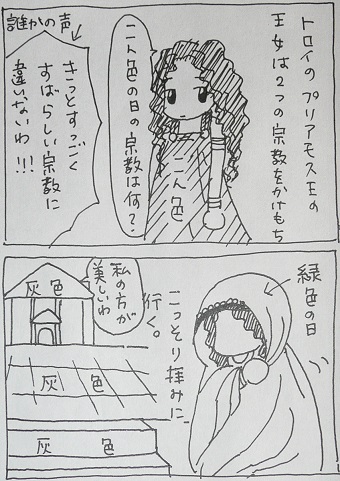 トロイのプリアモス王の
王女は2つの宗教をかけもち
こん色
こん色の日の宗教は何?
誰かの声
きっとすっごく
すばらしい宗教に
違いないわ!!!
緑色の日
こっそり拝みに
行く。
私の方が
美しいわ
灰色
灰色
灰色